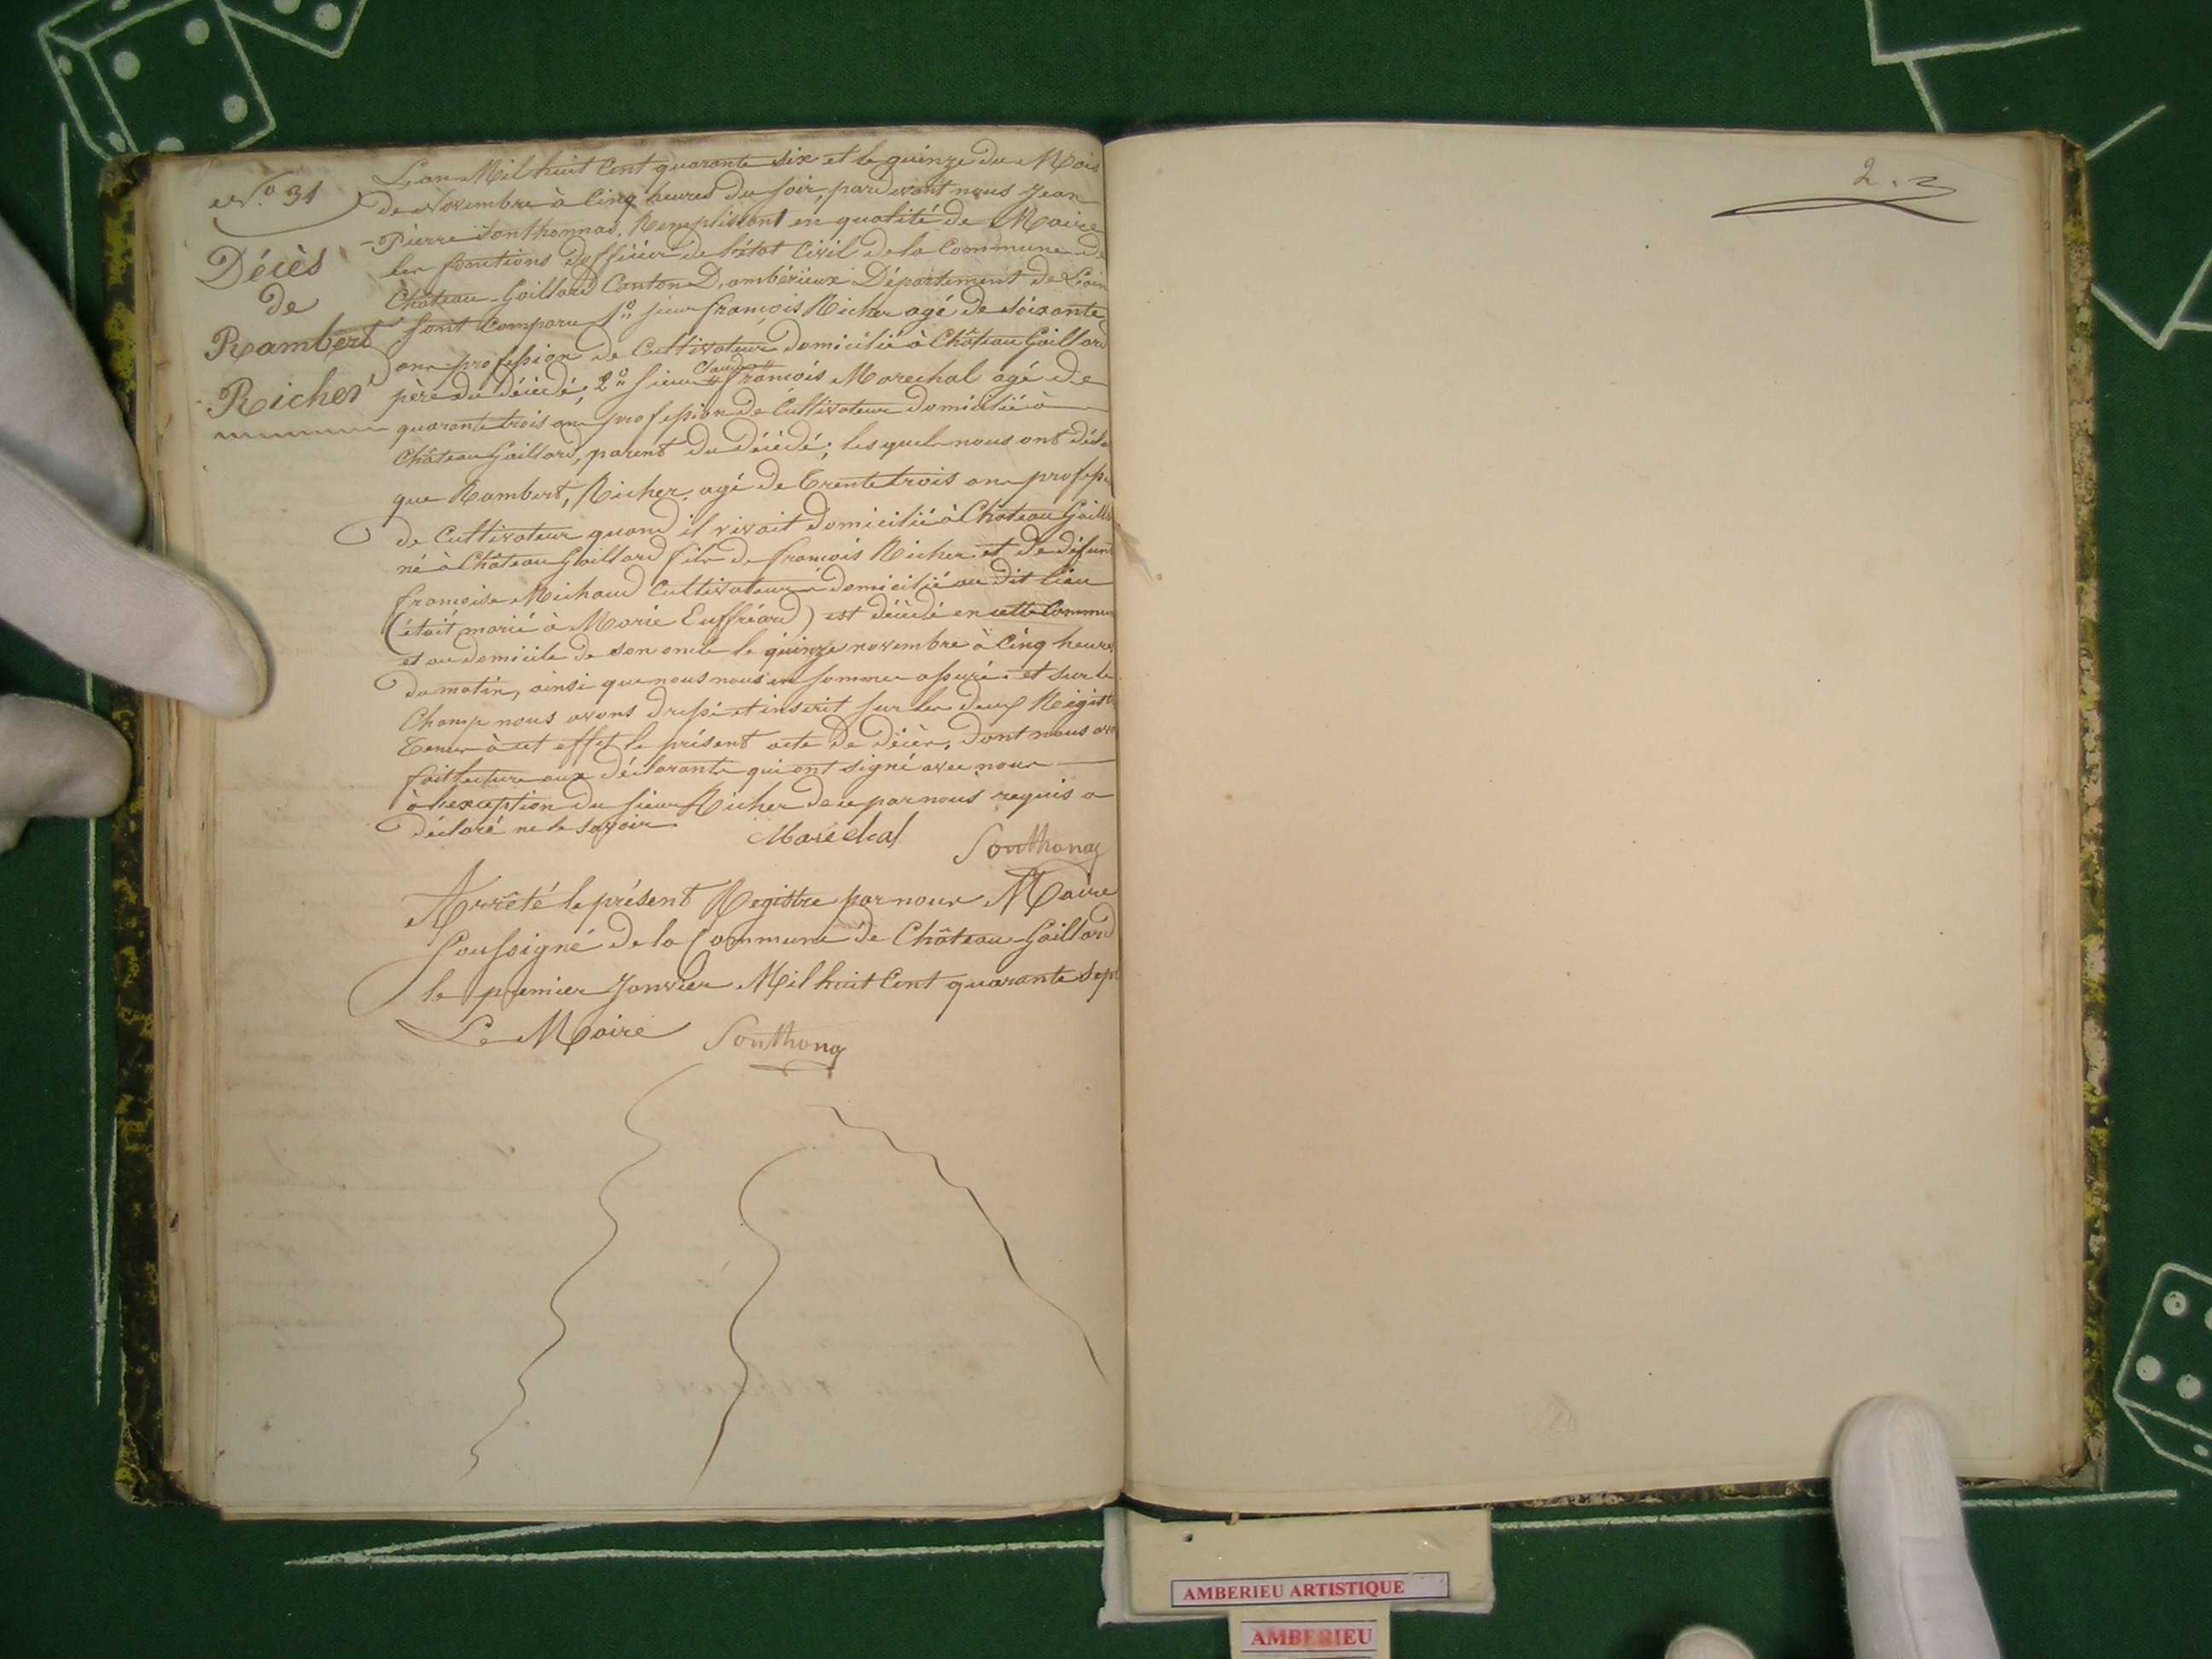 N.o 31
Décès
de
Rambert
Richer
L'an Mil huit Cent quarante six et le quinze du Mois
de Novembre à Cinq heures du soir, pardevant nous Jean
Pierre Sonthonnas, Remplissant en qualité de Maire
les fonctions d'offiier de l'état Civil de la Commune de
Château-Gaillard Canton D'ambérieux Département de L'ain
sont comparu 1.o sieur françois Richer agé de soixante
ans profession de Cultivateur domicilié à Château Gaillard
père du décédé; 2.o sieur Claude françois Marechal agé de
quarante trois ans profession de Cultivateur domicilié à
Château Gaillard, parent du décédé; les quels nous ont décla
que Rambert, Richer, agé de trente trois ans profess
de Cultivateur quand il vivait domicilié à Chateau Gailla
né à Château Gaillard fils de françois Richer et de défunt
françoise Michaud Cultivateurs domicilié au dit lieu
(était marié à Marie Euffréard) est décédé en cette Commun
et au domicile de son oncle le quinze novembre à Cinq heures
du matin, ainsi que nous nous en sommes assuré. et sur le
Champ nous avons dressé et inscrit sur les deux Régist
tenus à cet effet le présent acte de décès, dont nous av
fait lecture aux déclarants qui ont signé avec nous
à l'exception du sieur Richer de ce par nous requis a
déclaré ne le savoir
Maréchal Sonthonas
Arrêté le présent Registre par nous Maire
Soussigné de la Commune de Château-Gaillard
le premier Janvier Mil huit Cent quarante sept
Le Maire Sonthonas
AMBERIEU ARTISTIQUE
AMBERIEU